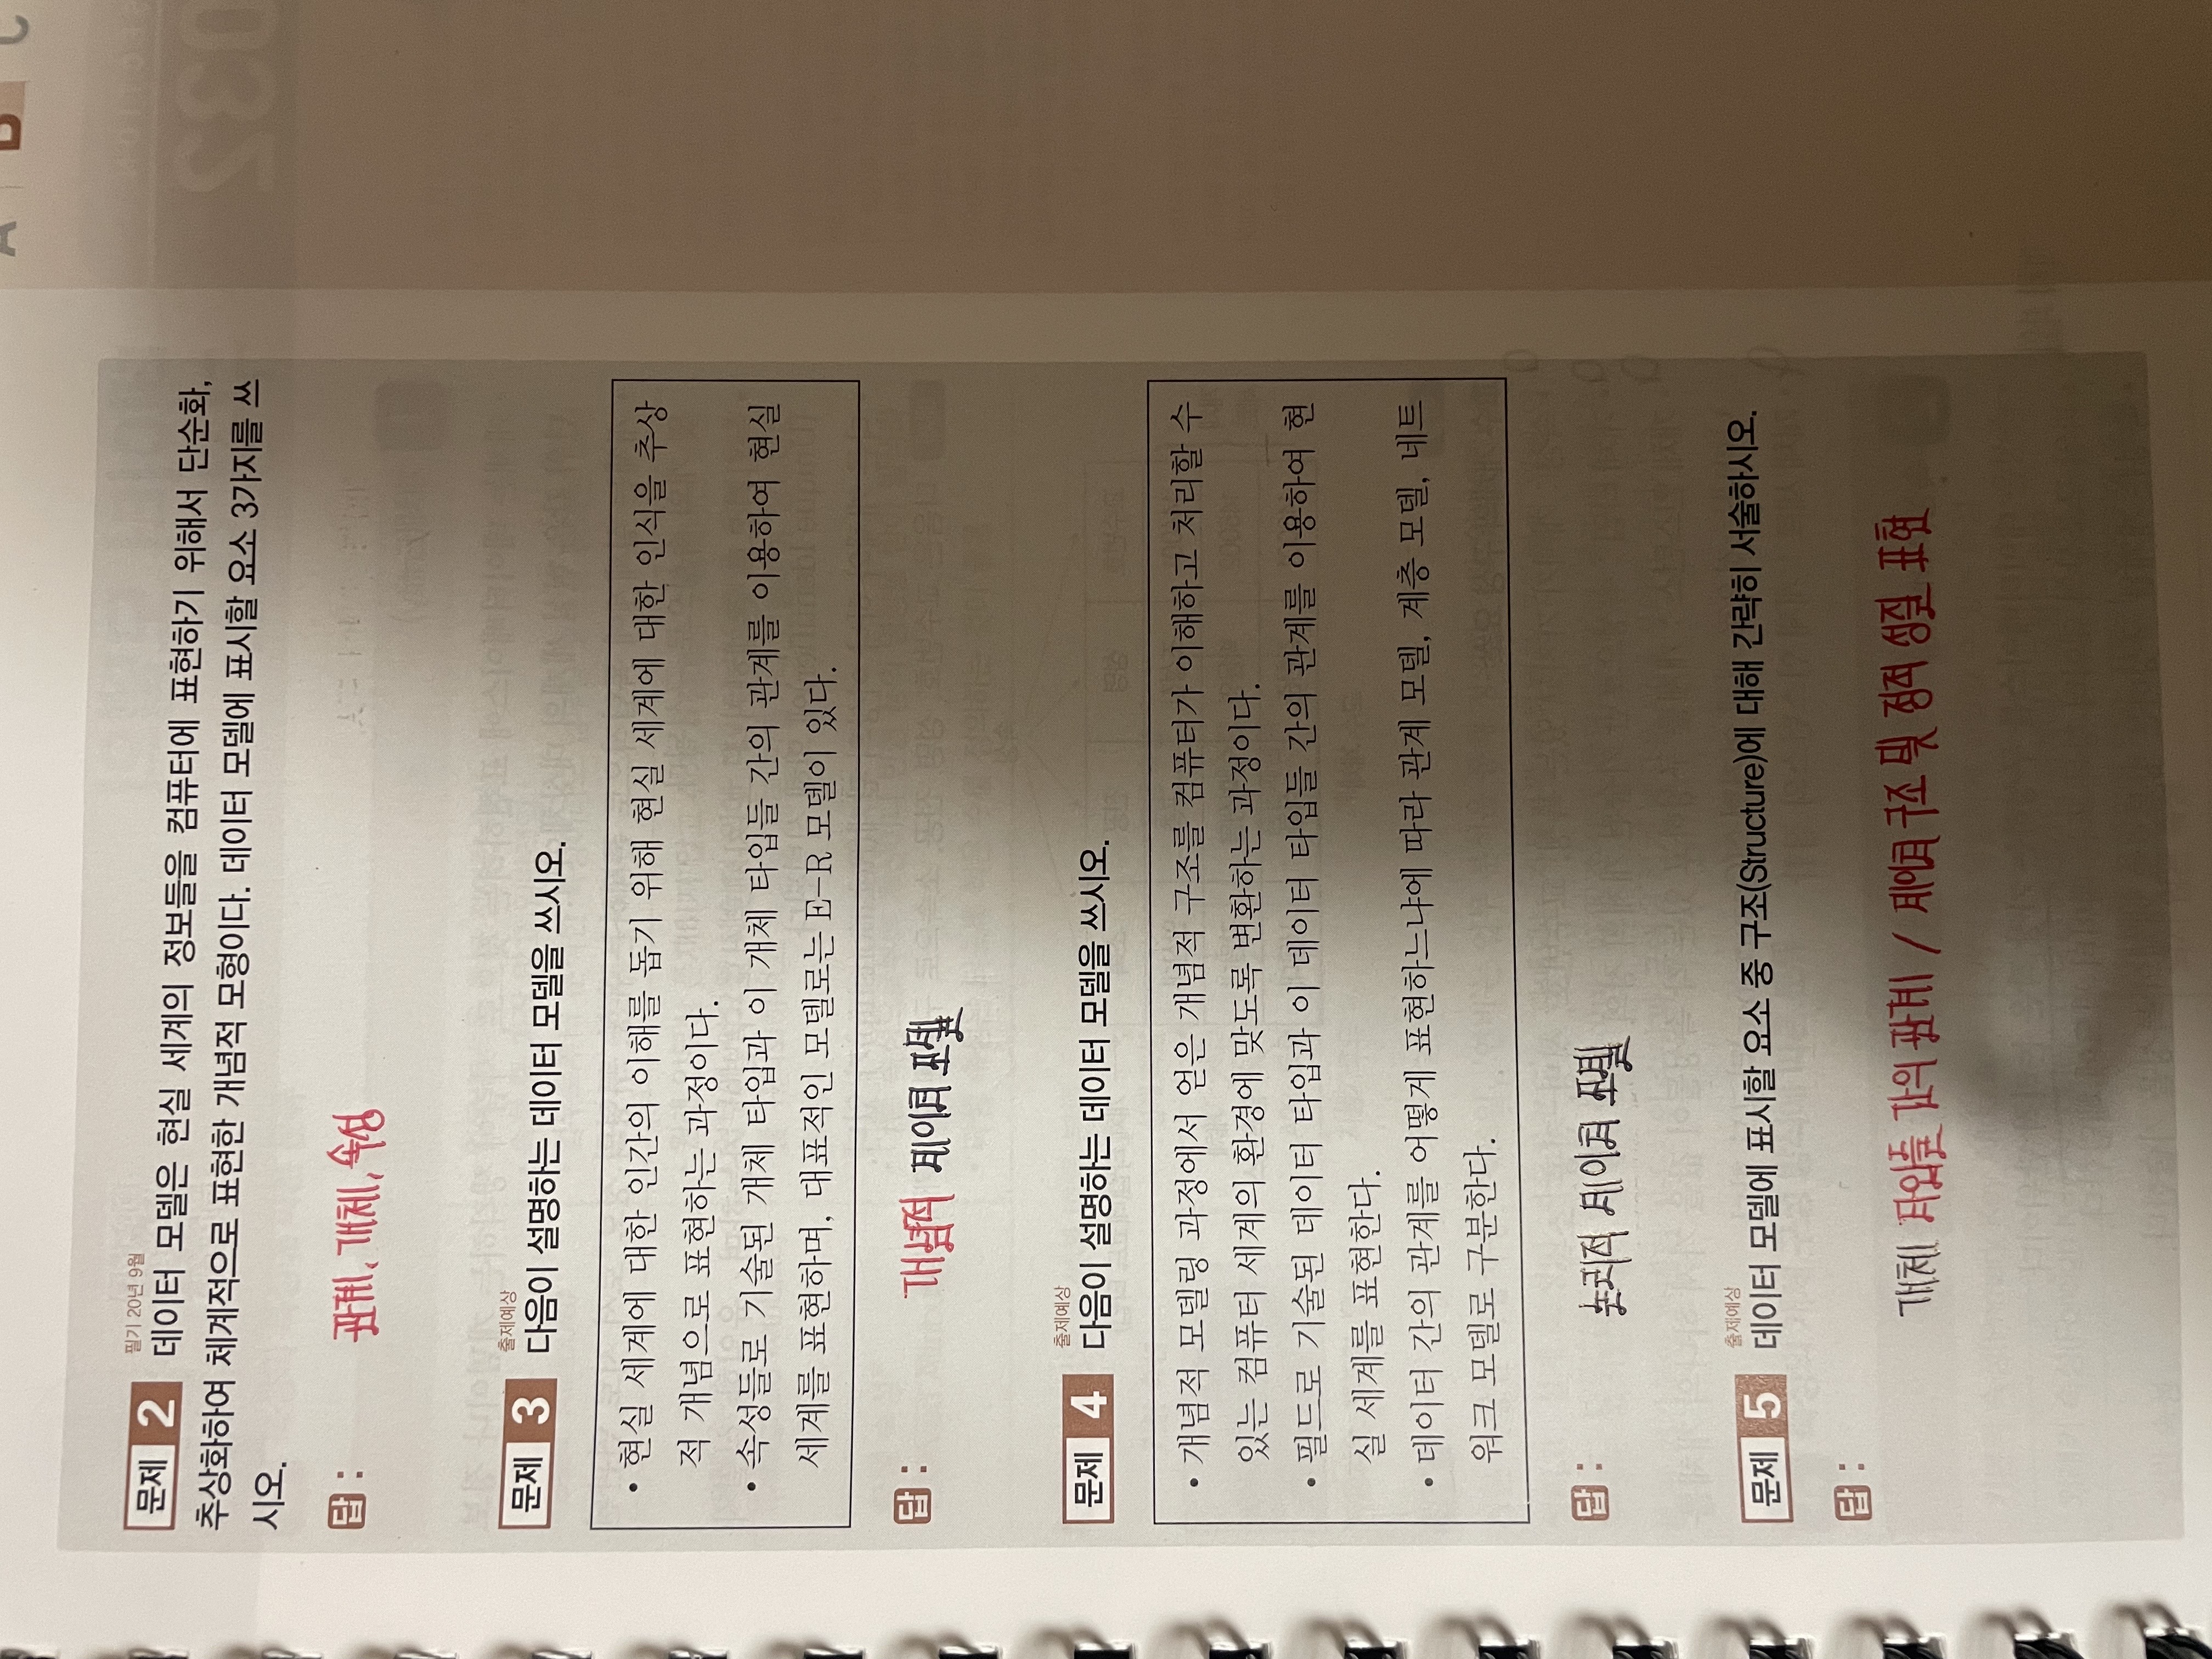 A B C
032
필기 20년 9월
문제 2 데이터 모델은 현실 세계의 정보들을 컴퓨터에 표현하기 위해서 단순화,
추상화하여 체계적으로 표현한 개념적 모형이다. 데이터 모델에 표시할 요소 3가지를 쓰
시오.
답 : 관계, 개체, 속성
출제예상
문제 3 다음이 설명하는 데이터 모델을 쓰시오.
• 현실 세계에 대한 인간의 이해를 돕기 위해 현실 세계에 대한 인식을 추상
적 개념으로 표현하는 과정이다.
• 속성들로 기술된 개체 타입과 이 개체 타입들 간의 관계를 이용하여 현실
세계를 표현하며, 대표적인 모델로는 E-R 모델이 있다.
답 : 개념적 데이터 모델
출제예상
문제 4 다음이 설명하는 데이터 모델을 쓰시오.
• 개념적 모델링 과정에서 얻은 개념적 구조를 컴퓨터가 이해하고 처리할 수
있는 컴퓨터 세계의 환경에 맞도록 변환하는 과정이다.
• 필드로 기술된 데이터 타입과 이 데이터 타입들 간의 관계를 이용하여 현
실 세계를 표현한다.
• 데이터 간의 관계를 어떻게 표현하느냐에 따라 관계 모델, 계층 모델, 네트
워크 모델로 구분한다.
답 : 논리적 데이터 모델
출제예상
문제 5 데이터 모델에 표시할 요소 중 구조(Structure)에 대해 간략히 서술하시오.
답 :
개체 타입들 간의 관계 / 데이터 구조 및 정적 성질 표현